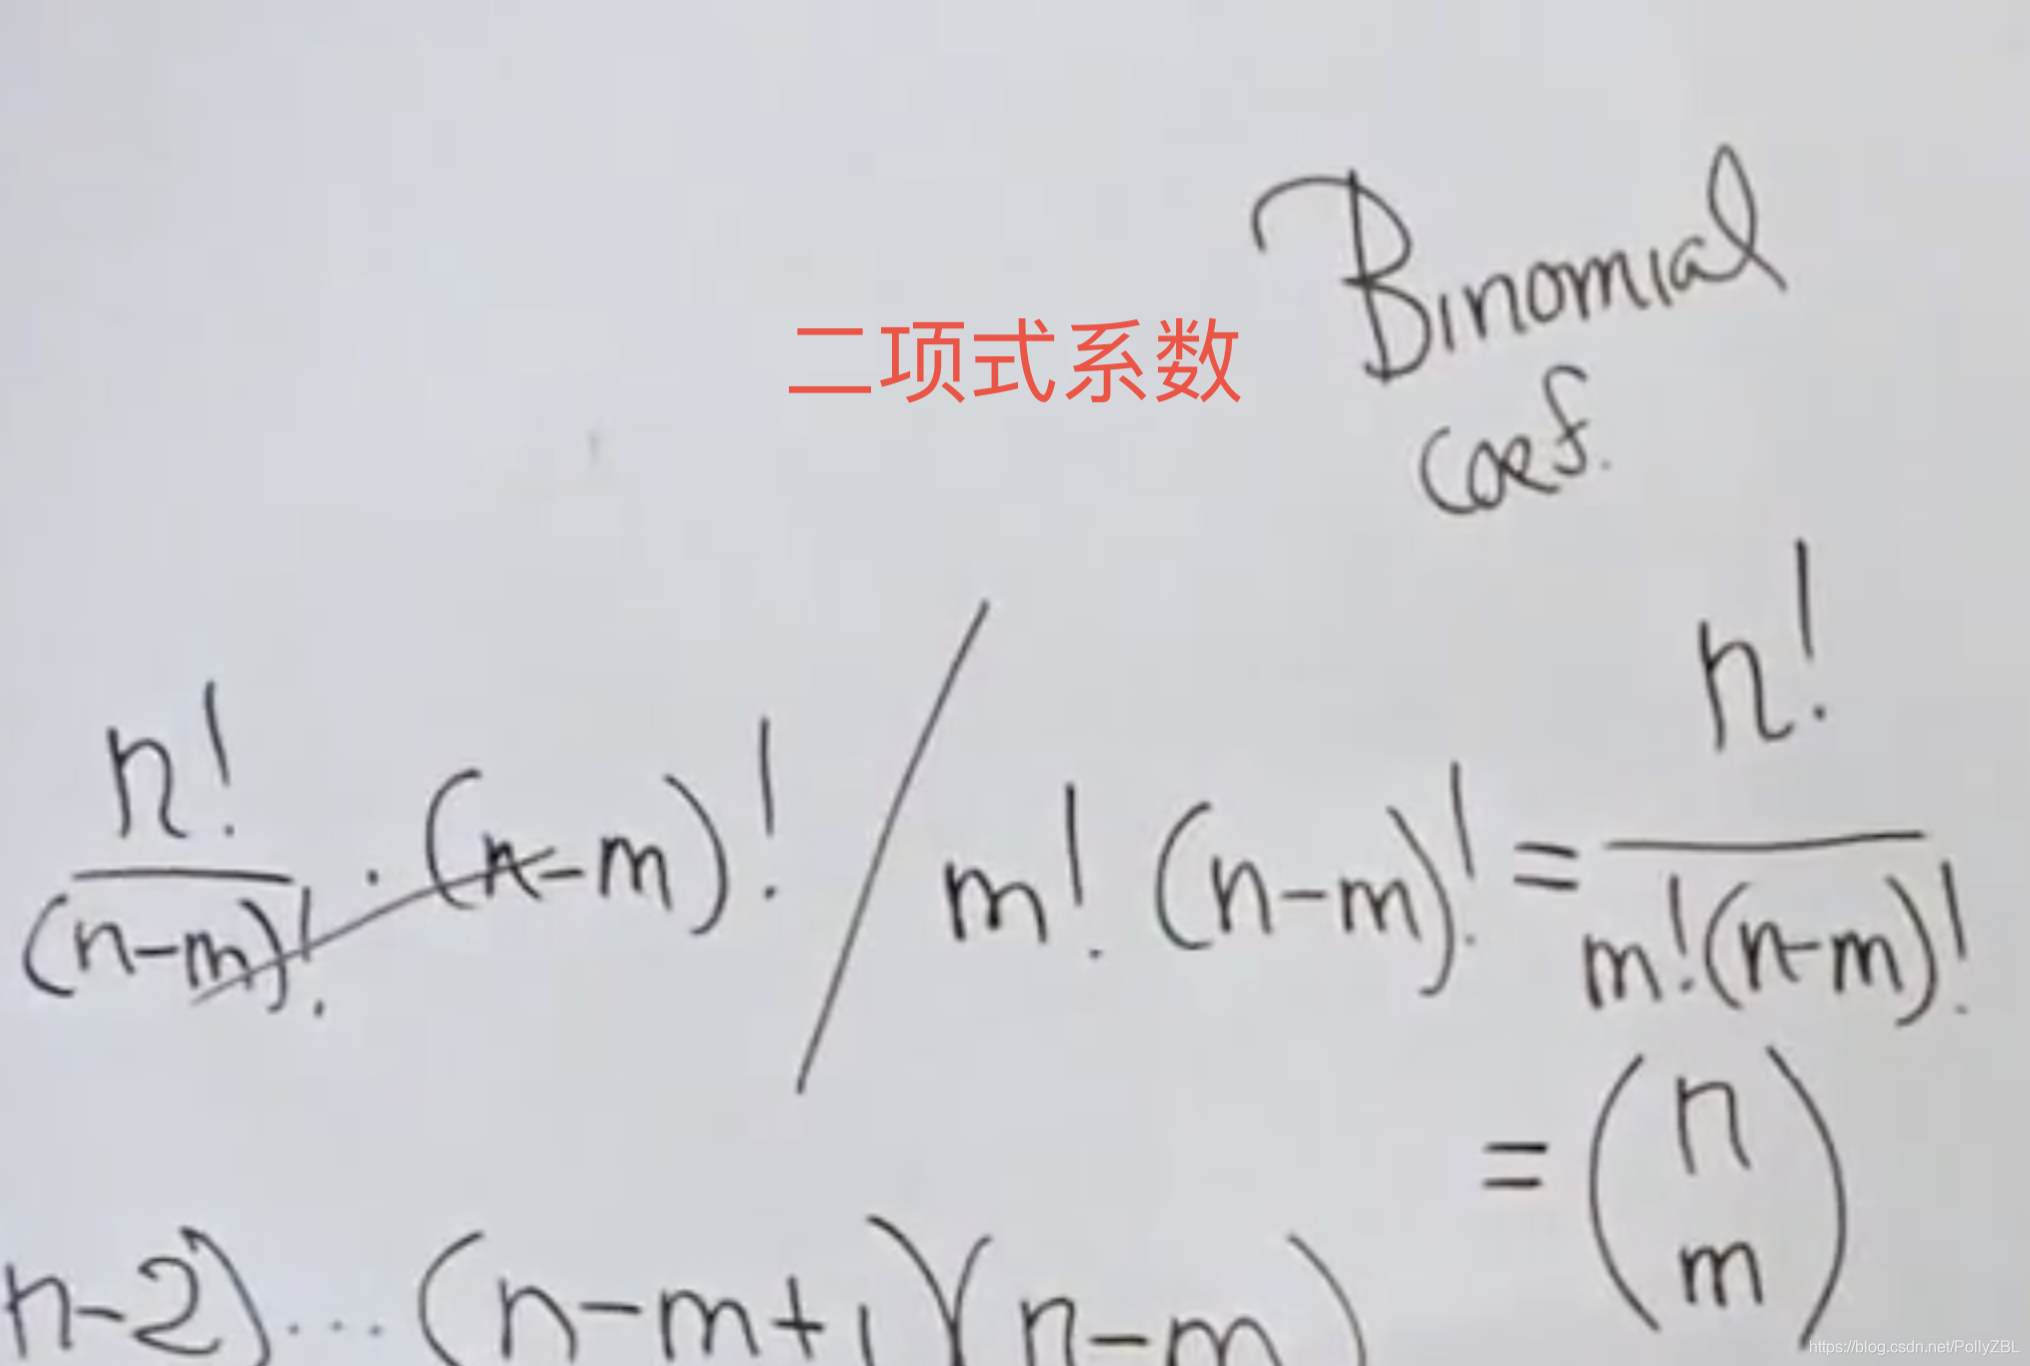 Binomial
二项式系数
coef.
n!/(n-m)! · (n-m)! / m! (n-m)! = n!/m!(n-m)!
= (n m)
n-2)...(n-m+1)(n-m)
https://blog.csdn.net/PollyZBL